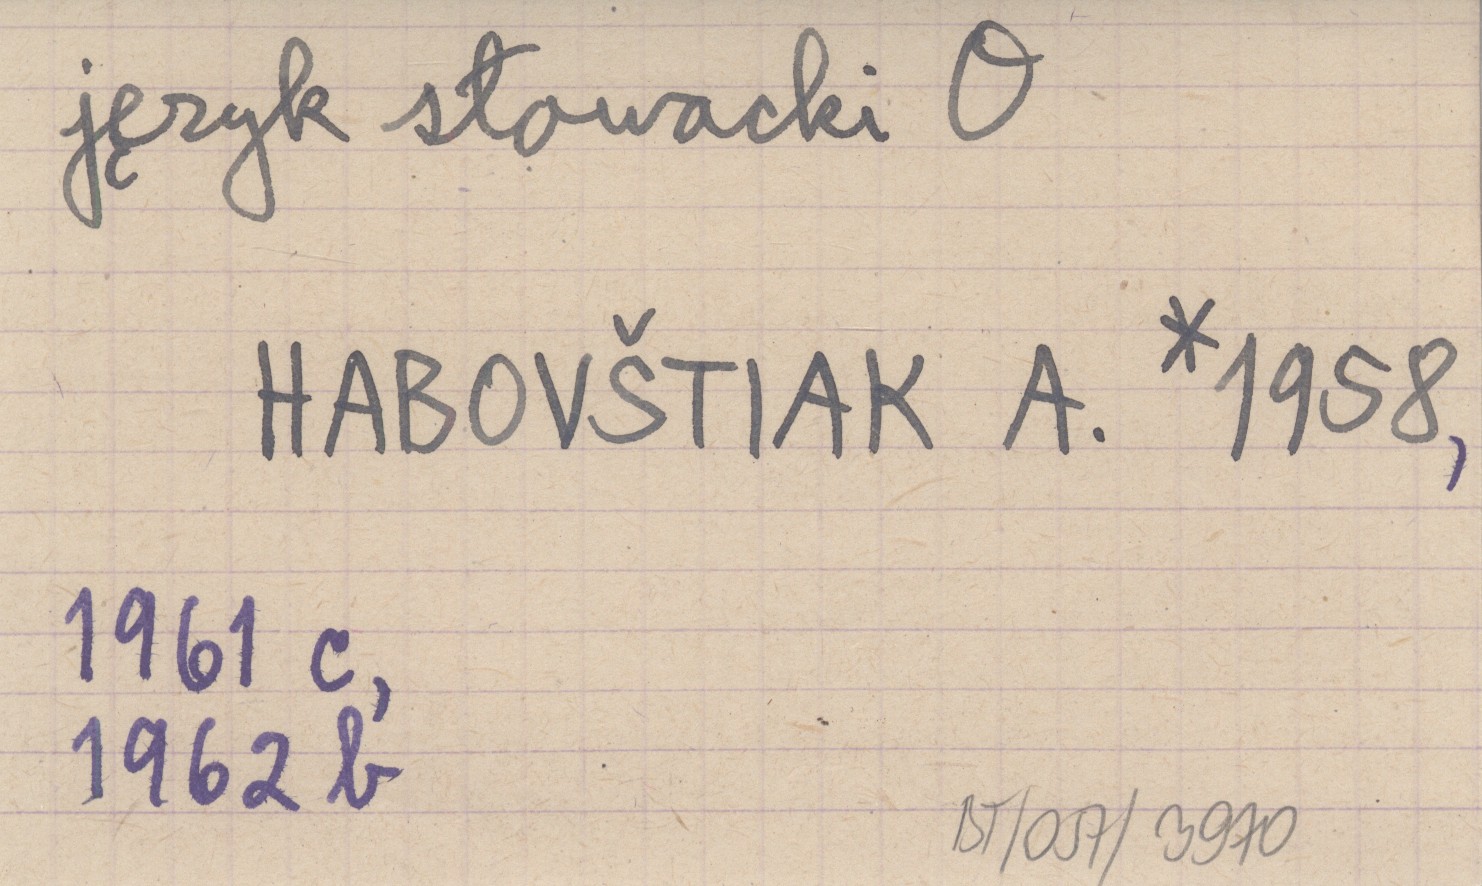 język słowacki O
HABOVŠTIAK A. *1958,
1961 c,
1962 b
BT/057/3970